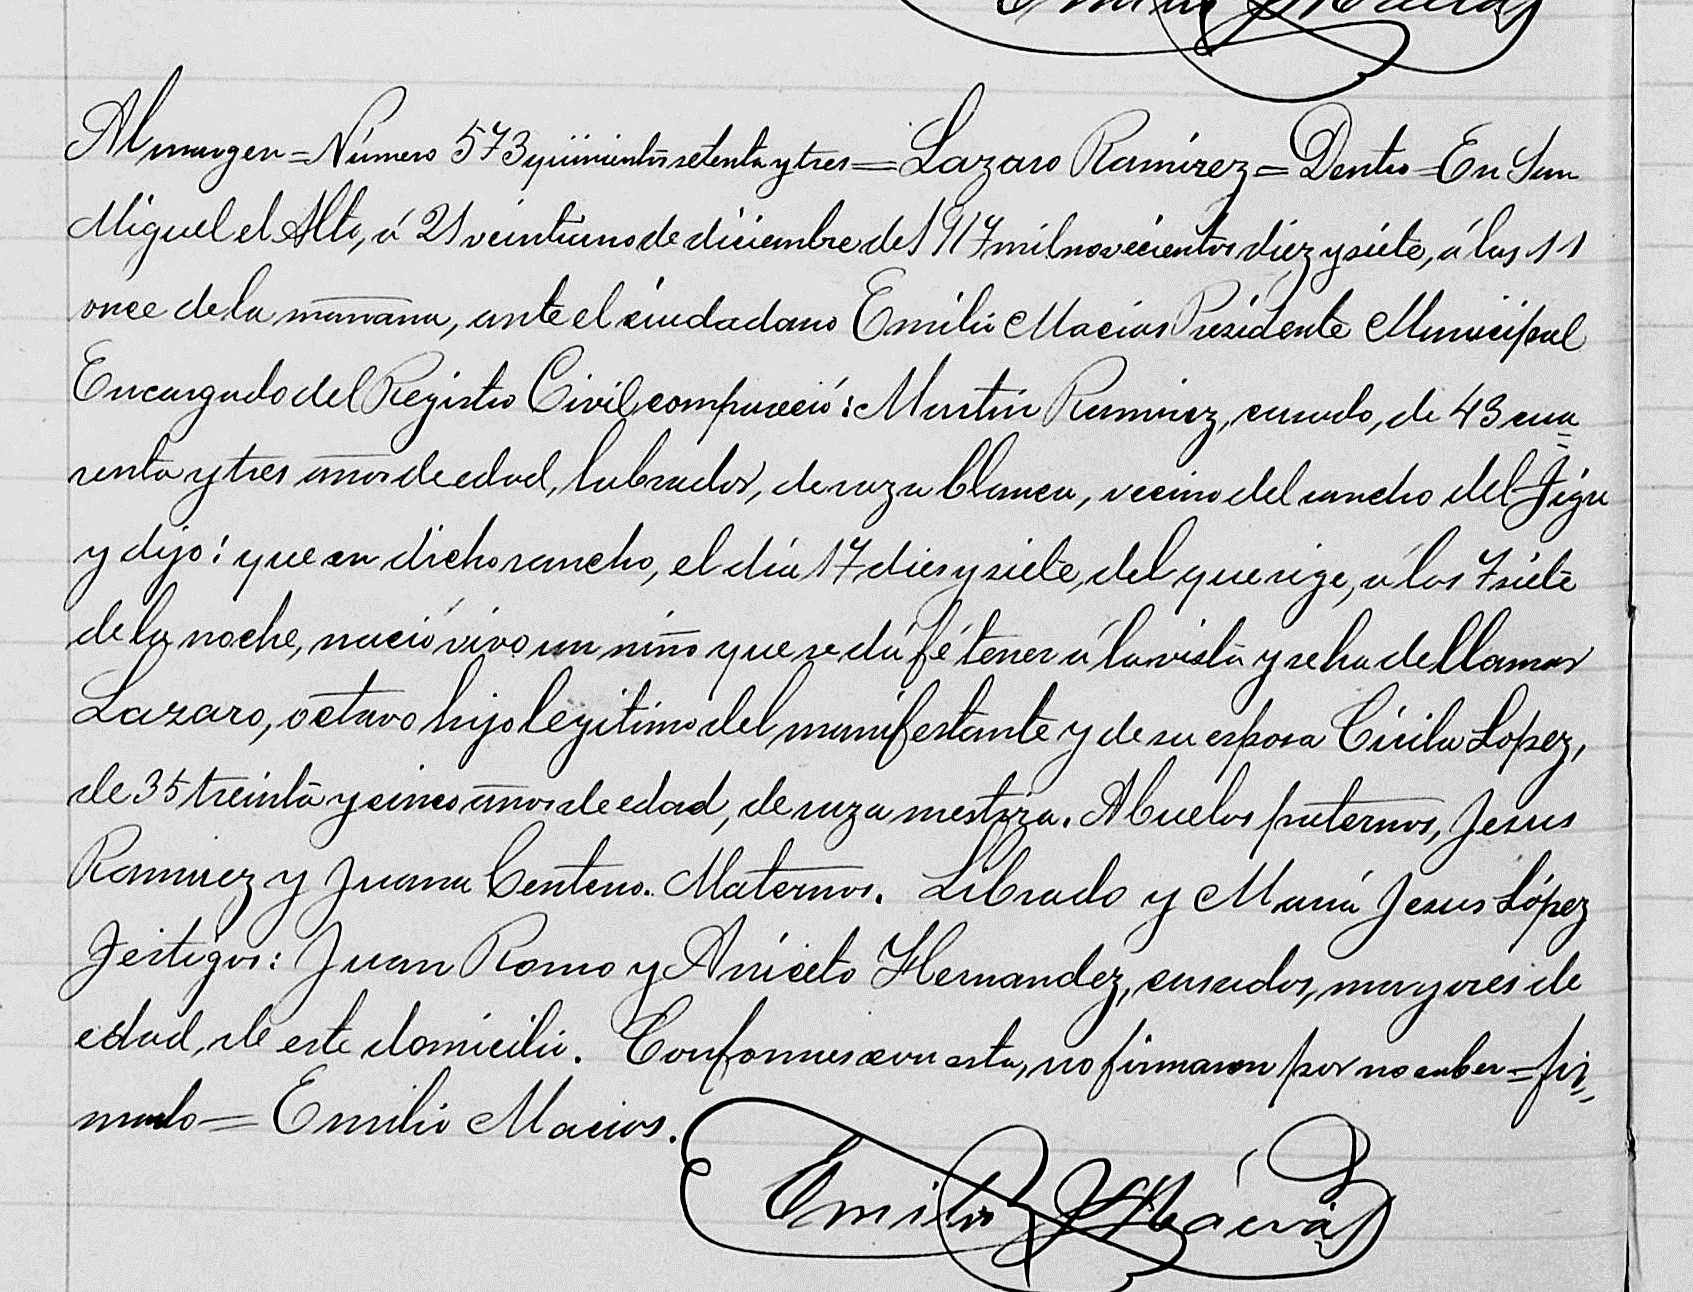 Emilio Macias
Al margen = Número 573 quinientos setenta y tres = Lazaro Ramirez = Dentro = En San
Miguel el Alto, á 21 veintiuno de diciembre de 1917 mil novecientos diez y siete, á las 11
once de la mañana, ante el ciudadano Emilio Macias Presidente Municipal
Encargado del Registro Civil compareció: Martin Ramirez, casado, de 43 cua=
renta y tres años de edad, labrador, de raza blanca, vecino del rancho del
y dijo: que en dicho rancho, el día 17 dies y siete, del que rige, á las 7 siete
de la noche, nació vivo un niño que se dá fé tener á la vista y se ha de llamar
Lazaro, octavo hijo legitimo del manifestante y de su esposa Cirila Lopez,
de 35 treinta y cinco años de edad, de raza mestiza. Abuelos paternos, Jesus
Ramirez y Juana Centeno. Maternos. Librado y María Jesus López
Testigos: Juan Romo y Aniceto Hernandez, casados, mayores de
edad, de este domicilio. Conformes con esta, no firmaron por no saber = fir=
mado = Emilio Macias.
Emilio Mácias